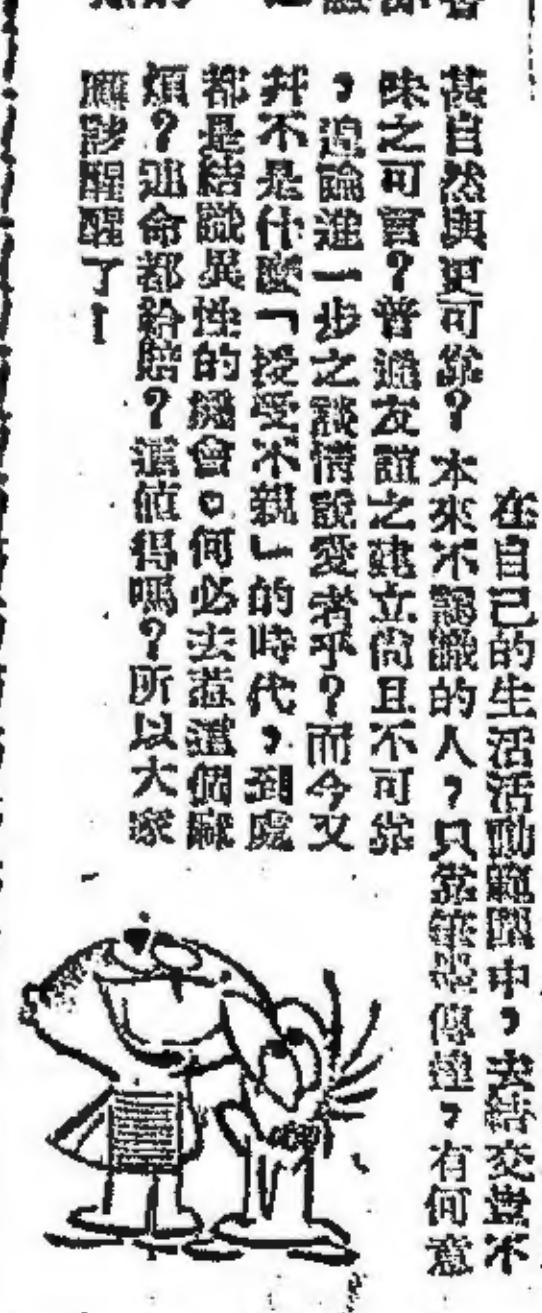 在自己的生活活動範圍中，去結交豈不
甚自然與更可靠？本來不認識的人，只靠筆墨傳達，有何意
味之可言？普通友誼之建立尚且不可靠
，遑論進一步之談情說愛者乎？而今又
并不是什麼「授受不親」的時代，到處
都是結識異性的機會。何必去惹這個麻
煩？連命都給賠？還值得嗎？所以大家
應該醒醒了！